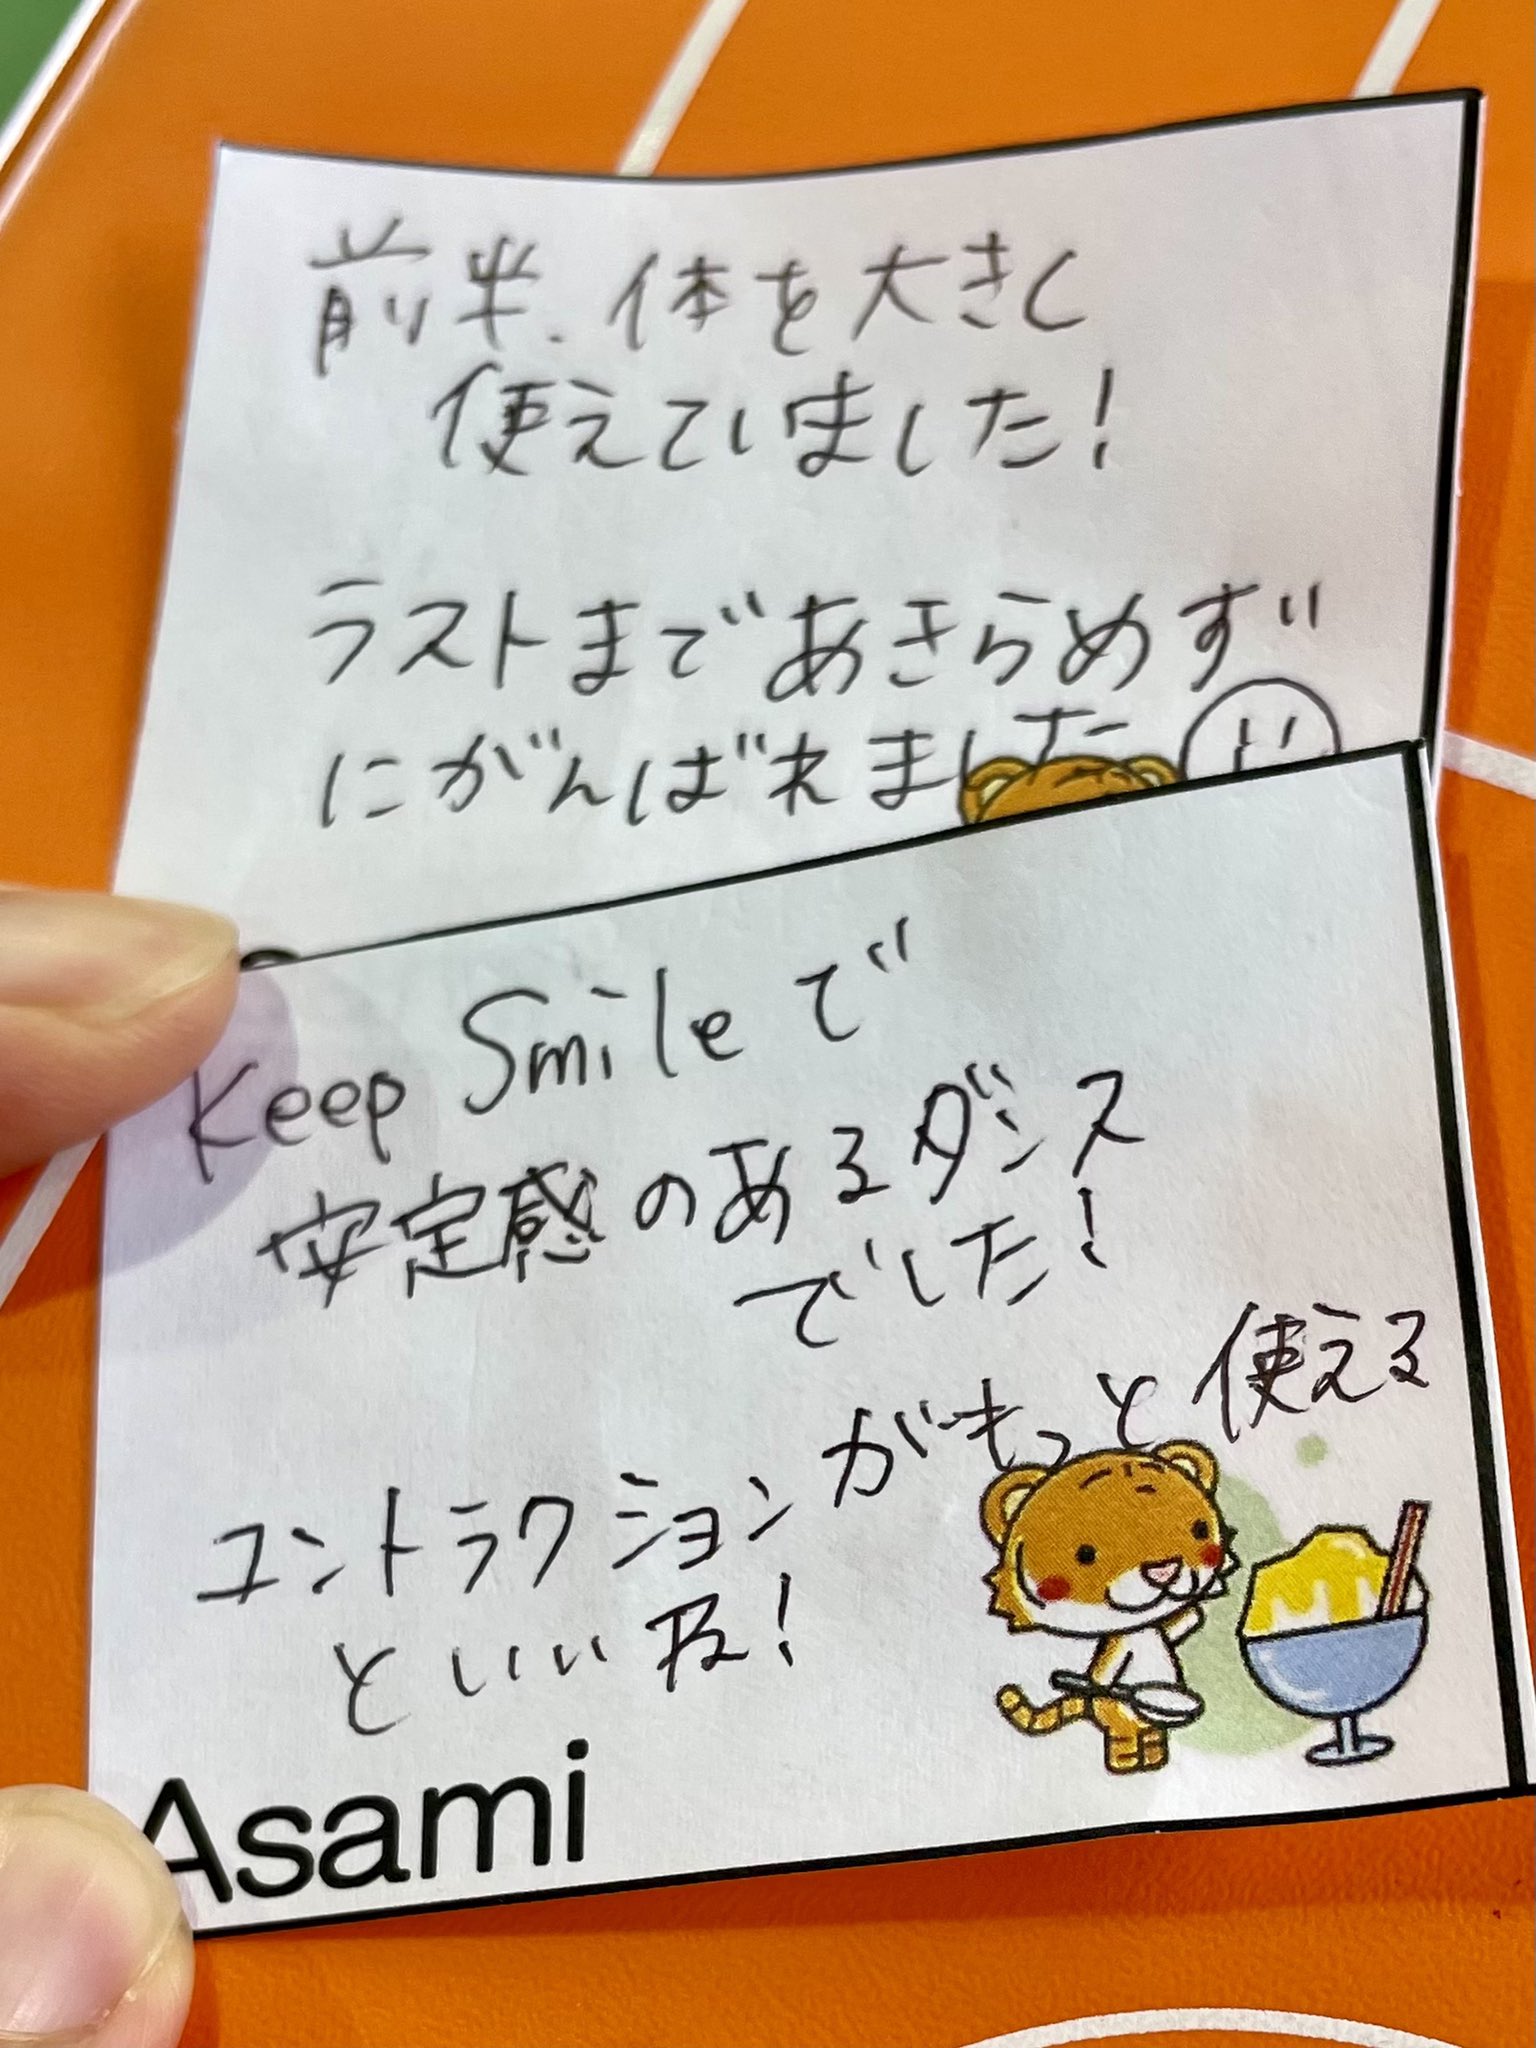 前半、体を大きく
使えていました!
ラストまであきらめず
にがんばれました
Keep Smileで
安定感のあるダンス
でした!
コントラクションがもっと使える
といい
Asami